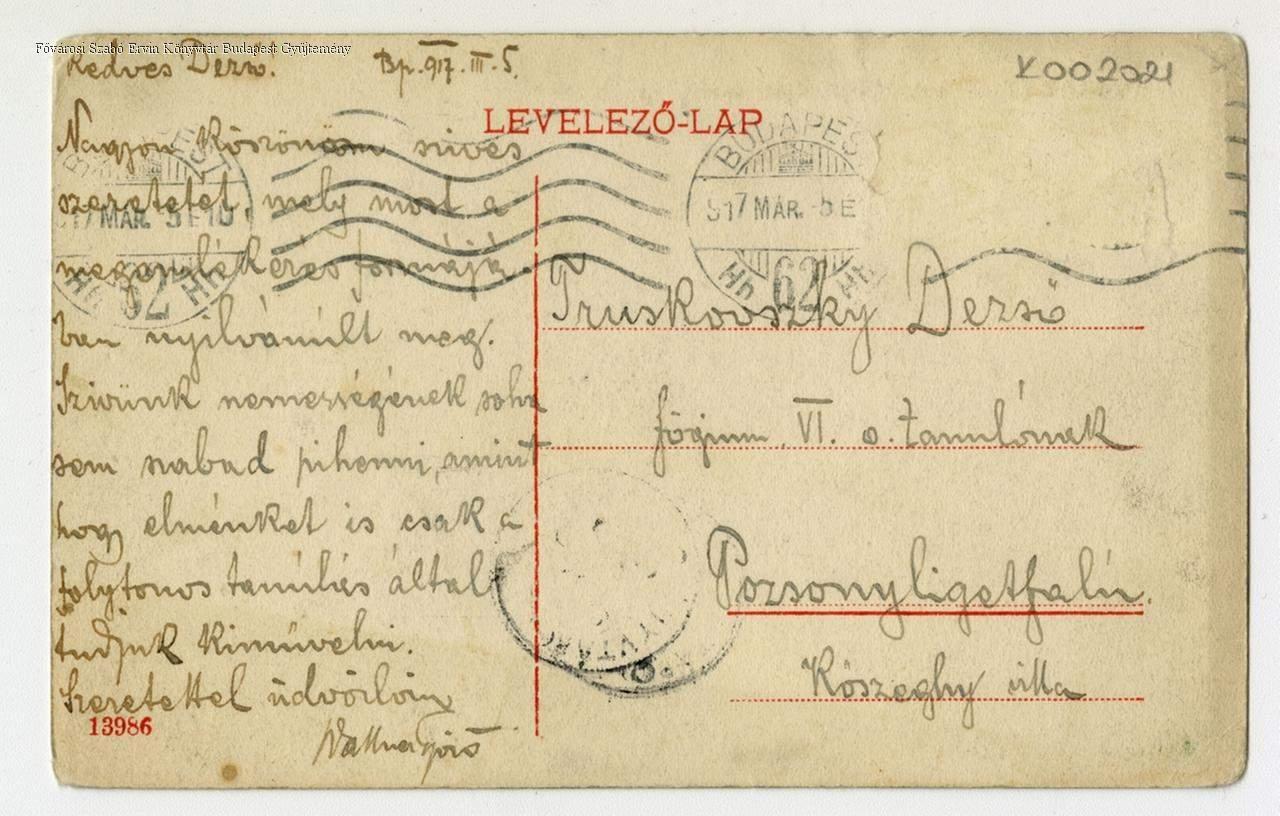 Fővárosi Szabó Ervin Könyvtár Budapest Gyűjtemény
Kedves Dezső!
Bp. 917. III. 5.
K002021
LEVELEZŐ-LAP
BUDAPEST
917 MÁR. -5 E
Hh 62 Hh
BUDAPEST
917 MÁR. 5 E 10
Hh 62 Hh
Nagyon köszönöm szives
szeretetét mely most a
formájá
ban nyilvánúlt meg.
Szivünk nemességének soha
sem szabad pihenni, amint
hogy elménket is csak a
folytonos tanúlás által
tudjuk kimüvelni.
Szeretettel üdvözlöm
Truskovszky Dezső
főgimn. VI. o. tanulónak
Pozsonyligetfalú.
Kőszeghy villa
13986